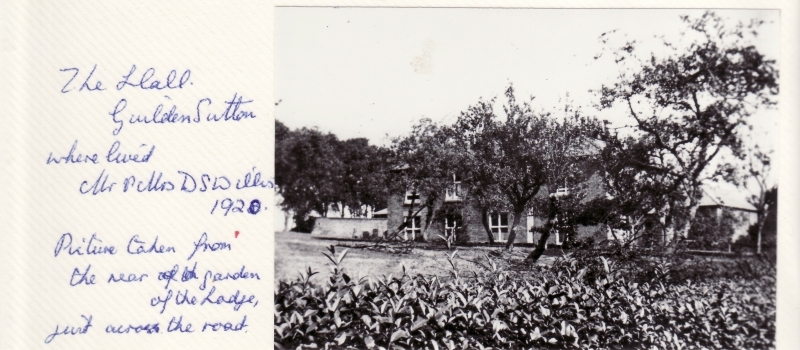 The Hall.
Guilden Sutton
where lived
Mr & Mrs D S Willis
1920.
Picture taken from
the rear of garden
of the Lodge,
just across the road.